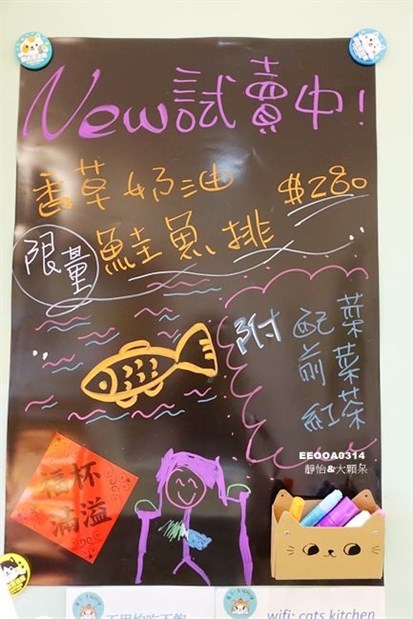 New試賣中!
香草奶油 $280
限量 鮭魚排
附 配菜
前菜
紅茶
EEOOA0314
靜怡&大顆呆
福杯
滿溢
wifi: cats kitchen